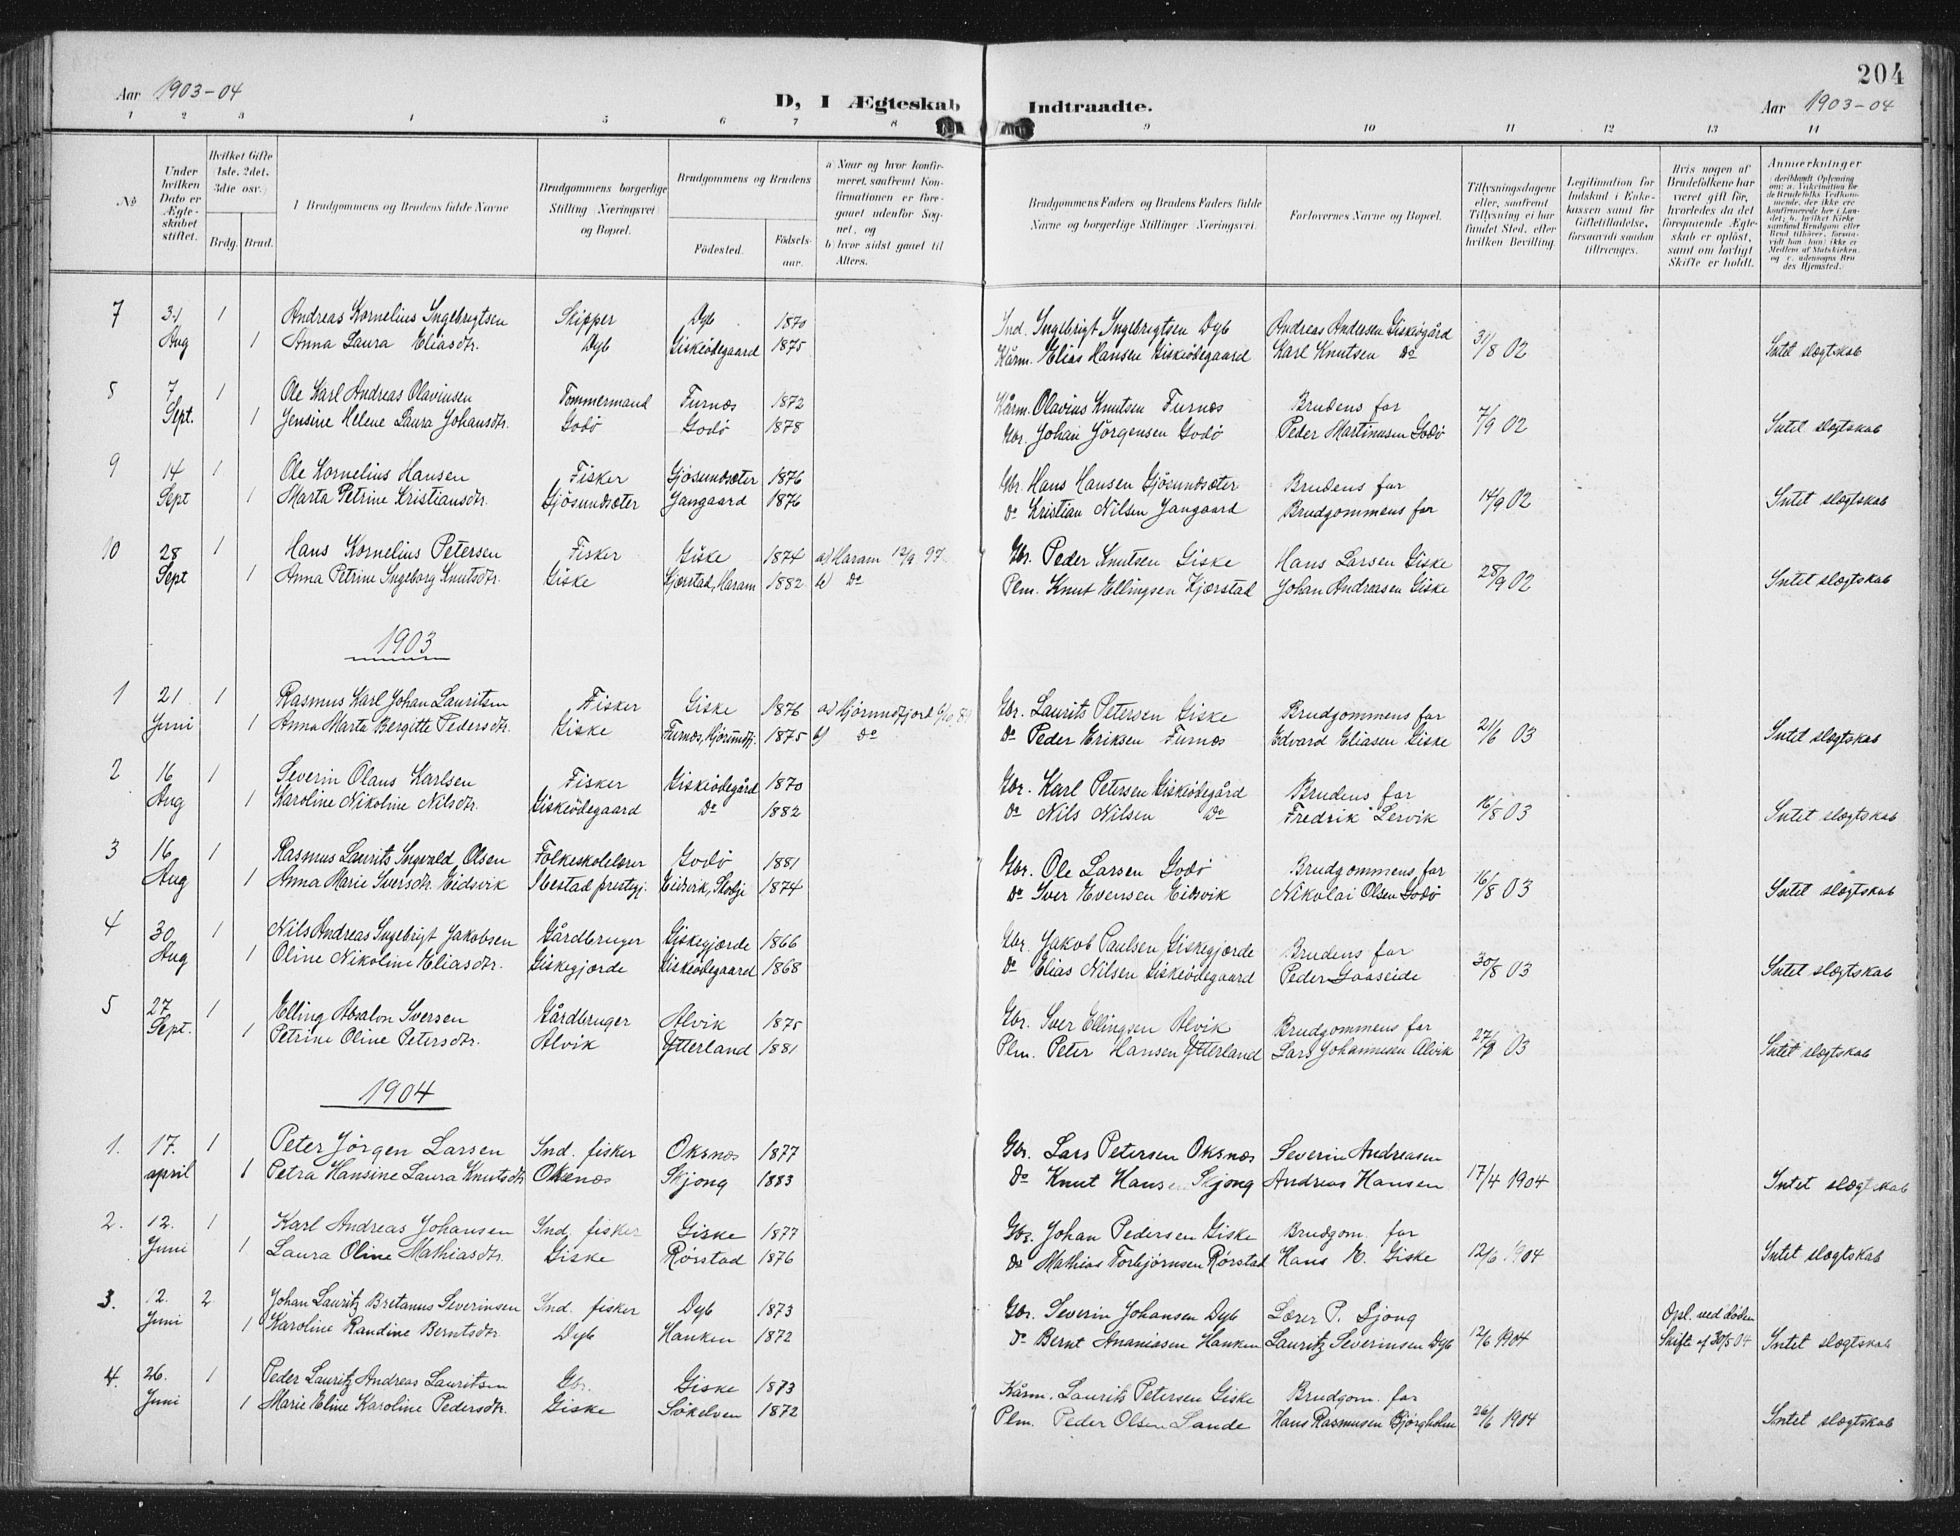 204
Aar 1903-04
D, I Ægteskab Indtraadte.
Aar 1903-04
1 2 3 4 5 6 7 8 9 10 11 12 13 14
No
Under hvilken Dato er Ægteskabet stiftet.
Hvilket Gifte (1ste, 2det, 3die osv.)
Brdg. Brud.
Brudgommens og Brudens fulde Navne
Brudgommens borgerlige Stilling (Næringsvei) og Bopæl.
Brudgommens og Brudens
Fødested. Fødselsaar.
a) Naar og hvor konfirmeret, saafremt Konfirmationen er foregaaet udenfor Sognet, og
b) hvor sidst gaaet til Alters.
Brudgommens Faders og Brudens Faders fulde Navne og borgerlige Stillinger (Næringsvei).
Forlovernes Navne og Bopæl.
Tillysningsdagene eller, saafremt Tillysning ei har fundet Sted, efter hvilken Bevilling
Legitimation for Indskud i Enkekassen samt for Giftetilladelse, forsaavidt saadan tiltrænges.
Hvis nogen af Brudefolkene har været gift før, hvorledes da det foregaaende Ægteskab er opløst, samt om lovligt Skifte er holdt.
Anmærkninger
7 31 1 Andreas Kornelius Ingebrigtsen Skipper Dyb 1870 Ind. Ingebrigt Ingebrigtsen Dyb Andreas Andersen Giskeøgård
Aug 1 Anna Laura Eliasdtr. Dyb Giskeødegaard 1875 Kårm. Elias Hansen Giskeødegaard Karl Knutsen Do 31/8 02 Intet slægtskab
5 7 1 Ole Karl Andreas Olavinsen Tømmermand Furnæs 1872 Kårm. Olavius Knutsen Furnæs Brudens far
Sept. 1 Jensine Helene Laura Johansdtr. Godø Godø 1878 Gbr. Johan Jørgensen Godø Peder Martinusen Godø 7/9 02 Intet slægtskab
9 14 1 Ole Kornelius Hansen Fisker Gjøsundsæter 1876 Gbr. Hans Hansen Gjøsundsæter Brudens far
Sept 1 Marta Petrine Kristiansdtr. Gjøsundsæter Gangaard 1876 Do Kristian Nilsen Gangaard Brudgommens far 14/9 02 Intet slægtskab
10 28 1 Hans Kornelius Petersen Fisker Giske 1874 a) Haram 12/9 97. Gbr. Peder Knutsen Giske Hans Larsen Giske
Sept 1 Anna Petrine Ingeborg Knutsdtr. Giske Kjærstad, Haram 1882 b) Do Plm. Knut Ellingsen Kjærstad Johan Andreasen Giske 28/9 02 Intet slægtskab
1903
1 21 1 Rasmus Karl Johan Lauritsen Fisker Giske 1876 a) Hjørundfjord 6/10 89 Gbr. Laurits Petersen Giske Brudgommens far
Juni 1 Anna Marta Bergitte Pedersdtr. Giske Furnæs, Hjørundfj. 1875 b) Do Do Peder Eriksen Furnæs Edvard Eliasen Giske 21/6 03 Intet slægtskab
2 16 1 Severin Olaus Karlsen Fisker Giskeødegård 1870 Gbr. Karl Petersen Giskeødegård Brudens far
Aug 1 Karoline Nikoline Nilsdtr. Giskeødegaard Do 1882 Do Nils Nilsen Do Fredrik Lervik 16/8 03 Intet slægtskab
3 16 1 Rasmus Laurits Ingvald Olsen Folkeskolelærer Godø 1881 Gbr. Ole Larsen Godø Brudgommens far
Aug 1 Anna Marie Sversdtr. Eidsvik Ibestad prestegj. Eidsvik, Skodje 1874 Do Sver Evensen Eidsvik Nikolai Olsen Godø 16/8 03 Intet slægtskab
4 30 1 Nils Andreas Ingebrigt Jakobsen Gårdbruger Giskegjærde 1866 Gbr. Jakob Paulsen Giskegjærde Brudens far
Aug 1 Oline Nikoline Eliasdtr. Giskegjærde Giskeødegaard 1868 Do Elias Nilsen Giskeødegaard Peder Gaaseide 30/8 03 Intet slægtskab
5 27 1 Elling Absalon Sversen Gårdbruger Alvik 1875 Gbr. Sver Ellingsen Alvik Brudgommens far
Sept. 1 Petrine Oline Petersdtr. Alvik Ytterland 1881 Plm. Peter Hansen Ytterland Lars Johannesen Alvik 27/9 03 Intet slægtskab
1904
1. 17. 1 Peter Jørgen Larsen Ind. fisker Oksnæs 1877 Gbr. Lars Petersen Oksnæs Severin Andreasen
april 1 Petra Hansine Laura Knutsdtr. Oksnæs Skjong 1883 Do Knut Hansen Skjong Andreas Hansen 17/4 1904 Intet slægtskab
2. 12. 1 Karl Andreas Johansen Ind. fisker Giske 1877 Gbr. Johan Pedersen Giske Brudgom. far
Juni 1 Laura Oline Mathiasdtr. Giske Rørstad 1876 Do Mathias Torbjørnsen Rørstad Hans K. Giske 12/6 1904 Intet slægtskab
3. 12. 2 Johan Lauritz Bretanus Severinsen Ind. fisker Dyb 1873 Gbr. Severin Johansen Dyb Lærer P. Sjong Opl. ved døden
Juni 1 Karoline Randine Berntsdtr. Dyb Hanken 1872 Do Bernt Ananiasen Hanken Lauritz Severinsen Dyb 12/6 1904 Skifte af 30/5 04 Intet slægtskab
4. 26. 1 Peder Lauritz Andreas Lauritsen Gbr. Giske 1873 Kårm. Laurits Petersen Giske Brudgom. far
Juni 1 Marie Eline Karoline Pedersdtr. Giske Søkelven 1872 Plm. Peder Olsen Sande Hans Rasmusen Bjørgholm 26/6 1904 Intet slægtskab